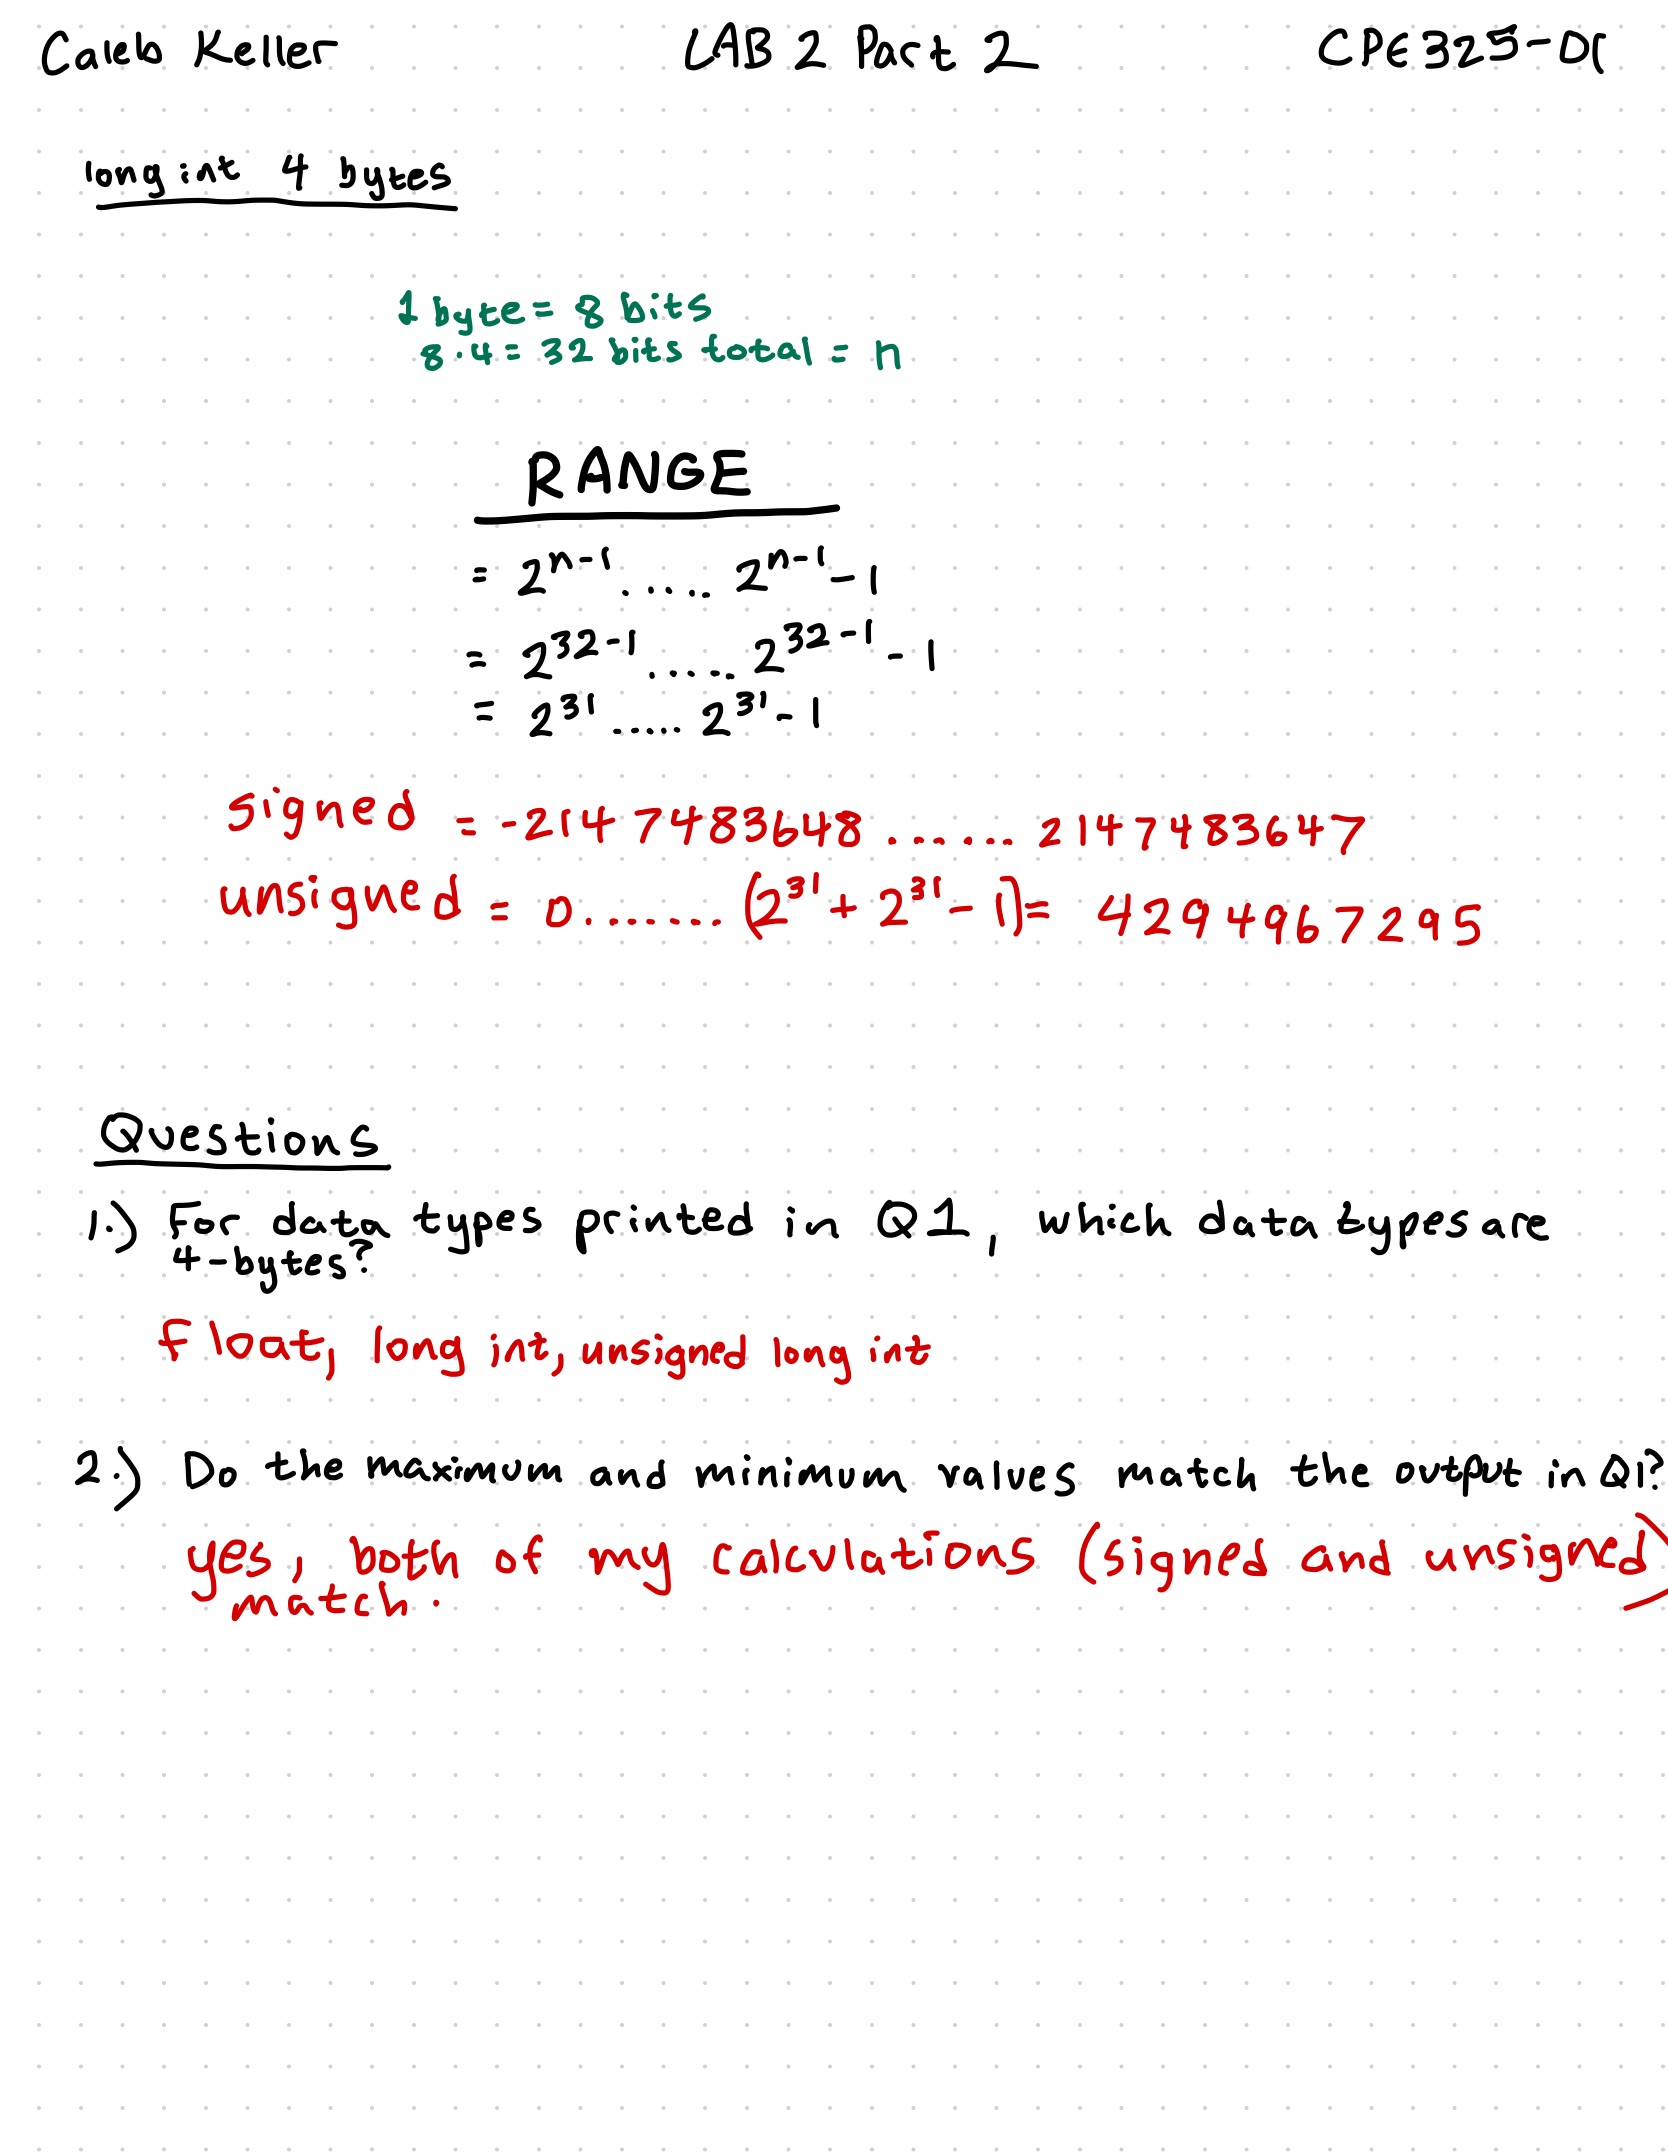 Caleb Keller LAB 2 Part 2 CPE325-01
long int 4 bytes
1 byte = 8 bits
8·4 = 32 bits total = n
RANGE
= 2^{n-1} ..... 2^{n-1} - 1
= 2^{32-1} ..... 2^{32-1} - 1
= 2^{31} ..... 2^{31} - 1
signed = -2147483648 ...... 2147483647
unsigned = 0....... (2^{31} + 2^{31} - 1) = 4294967295
Questions
1.) For data types printed in Q1, which data types are
4-bytes?
float, long int, unsigned long int
2.) Do the maximum and minimum values match the output in Q1?
yes, both of my calculations (signed and unsigned)
match.